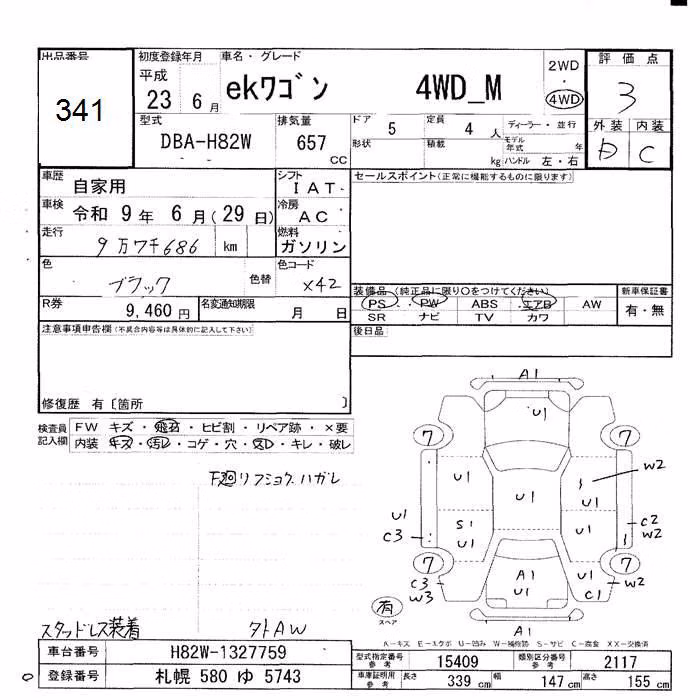 出品番号
341
初度登録年月
平成
23 6月
車名・グレード
ekﾜｺﾞﾝ 4WD_M
2WD
・
4WD
評価点
3
外装 内装
D C
型式
DBA-H82W
排気量
657
CC
ドア 5
定員 4 人
ディーラー・並行
形状
積載 kg
モデル年式 年
ハンドル 左・右
車歴
自家用
シフト
IAT
セールスポイント(正常に機能するものに限ります)
車検
令和 9年 6月(29日)
冷房
AC
走行
9万7千686 km
燃料
ガソリン
色
ブラック
色替
色コード
X42
装備品 (純正品に限り〇をつけてください)
PS PW ABS エアB AW
SR ナビ TV カワ
新車保証書
有・無
R券
9,460円
名変通知期限
月 日
後日品
注意事項申告欄(不具合内容等は具体的に記入して下さい)
修復歴 有〔箇所 〕
検査員記入欄
FW キズ・飛石・ヒビ割・リペア跡・×要
内装 キズ・汚レ・コゲ・穴・スレ・キレ・破レ
下廻リフショクハガレ
A1
U1
7 7
W2
U1 U1 U1
U1
C3
S1
U1
U1
C2
W2
7 7
C3
W3
A1
U1
U1
C1
W2
有
スペア
A1
スタッドレス装着 外AW
A-キズ E-エクボ U-凹み W-補修跡 S-サビ C-腐食 XX-交換済
車台番号 H82W-1327759
登録番号 札幌 580 ゆ 5743
型式指定番号 参考 15409
類別区分番号 参考 2117
車庫証明用 参考
長さ 339 cm
幅 147 cm
高さ 155 cm